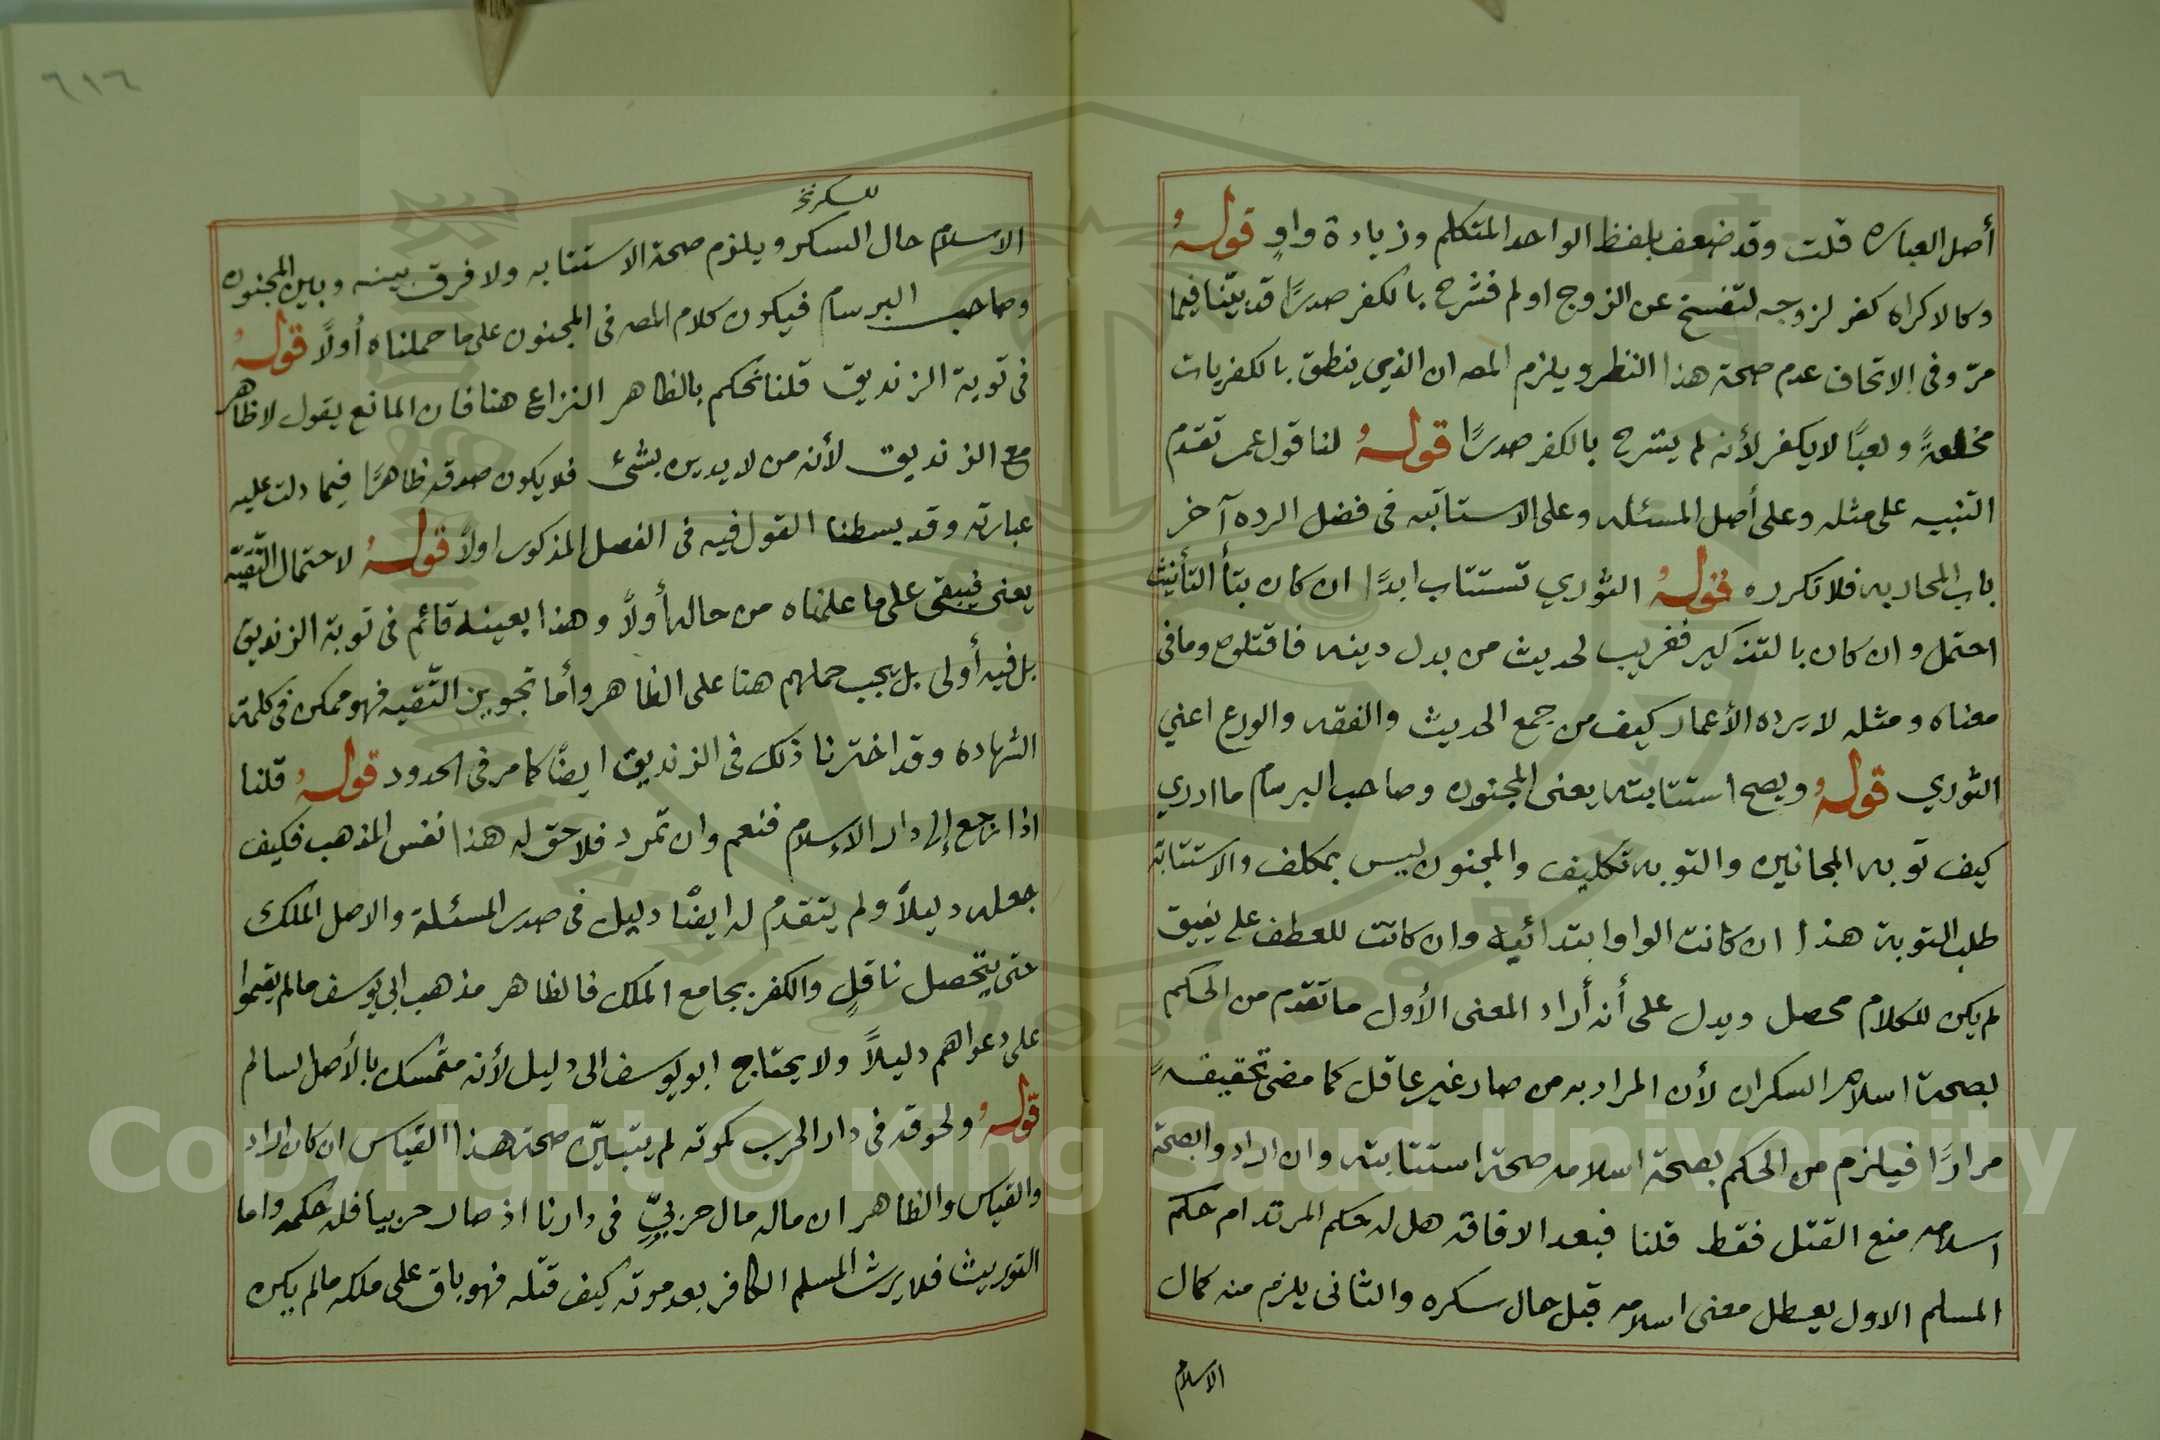 أصل العباره قلت وقد ضعف بلفظ الواحد المتكلم وزيادة واوٍ قوله
وكالاكراه كفر لزوجه لتفسخ عن الزوج اولم فشرح بالكفر صدرًا قد بيّنا فيما
مرّ وفى الاتحاف عدم صحة هذا النظر ويلزم المصه ان الذي ينطق بالكفريات
ولعبًا لايكفر لأنه لم ينشرح بالكفر صدرًا قوله لنا قول عمر تقدم
التنبيه على مثله وعلى أصل المسئله وعلى الاستتابه فى فضل الرده آخر
باب المحاربه فلا تكرره قوله الثوري تستتاب ابدًا ان كان بتأ التأنيث
احتمل وان كان بالتذكير فغريب لحديث من بدل دينه فاقتلوه ومافى
معناه ومثله لا يرده الأعمار كيف من جمع الحديث والفقه والورع اعني
الثوري قوله ويصح استتابته يعنى المجنون وصاحب البرسام ما ادري
كيف توبه المجانين والتوبه تكليف والمجنون ليس بمكلف والاستتابة
طلب التوبة هذا ان كانت الواو ابتدائيه وان كانت للعطف على يفيق
لم يكن للكلام محصل ويدل على أنه أراد المعنى الأول ما تقدم من الحكم
بصحة اسلام السكران لأن المراد به من صار غير عاقل كما مضى تحقيقه
مرارًا فيلزم من الحكم بصحة اسلامه صحة استتابته وان ارادوا بصحة
اسلامه منع القتل فقط قلنا فبعد الافاقه هل له حكم المرتد ام حكم
المسلم الاول يعطل معنى اسلامه قبل حال سكره والثانى يلزم منه كمال
الاسلام
٦١٦
للسكر نخ
الاسلام حال السكر ويلزم صحة الاستتابه ولا فرق بينه وبين المجنون
وصاحب البرسام فيكون كلام المصه فى المجنون على ما حملناه أولًا قوله
فى توبة الزنديق قلنا نحكم بالظاهر النزاع هنا فان المانع يقول لا ظاهر
مع الزنديق لأنه من لا يدين بشئ فلا يكون صدقه ظاهرًا فيما دلت عليه
عبارته وقد بسطنا القول فيه فى الفصل المذكور اولًا قوله لاحتمال التّقيّه
يعنى فيبقى على ما علمناه من حاله أولًا وهذا بعينه قائم فى توبة الزنديق
بل فيه أولى بل يجب حملهم هنا على الظاهر وأما تجويز التّقيه فهو ممكن فى كلمة
الشهاده وقد اخترنا ذلك فى الزنديق ايضًا كما مر فى الحدود قوله قلنا
اذا رجع إلى دار الإسلام فنعم وان تمرد فلا حق له هذا نفس المذهب فكيف
جعله دليلًا ولم يتقدم له ايضًا دليل فى صدر المسئلة والاصل الملك
حتى يتحصل ناقلٍ والكفر يجامع الملك فالظاهر مذهب ابي يوسف مالم يقيموا
على دعواهم دليلًا ولا يحتاج ابو يوسف الى دليل لأنه متمسك بالأصل السالم
قوله ولحوقه فى دار الحرب كموته لم يتبيّن صحة هذا القياس ان كان اراد
والقياس والظاهر ان ماله مال حربيٍّ فى دارنا اذ صار حربيا فله حكمه واما
التوريث فلا يرث المسلم الكافر بعد موته كيف قتله فهو باق على ملكه مالم يكن
Copyright © King Saud University
1957